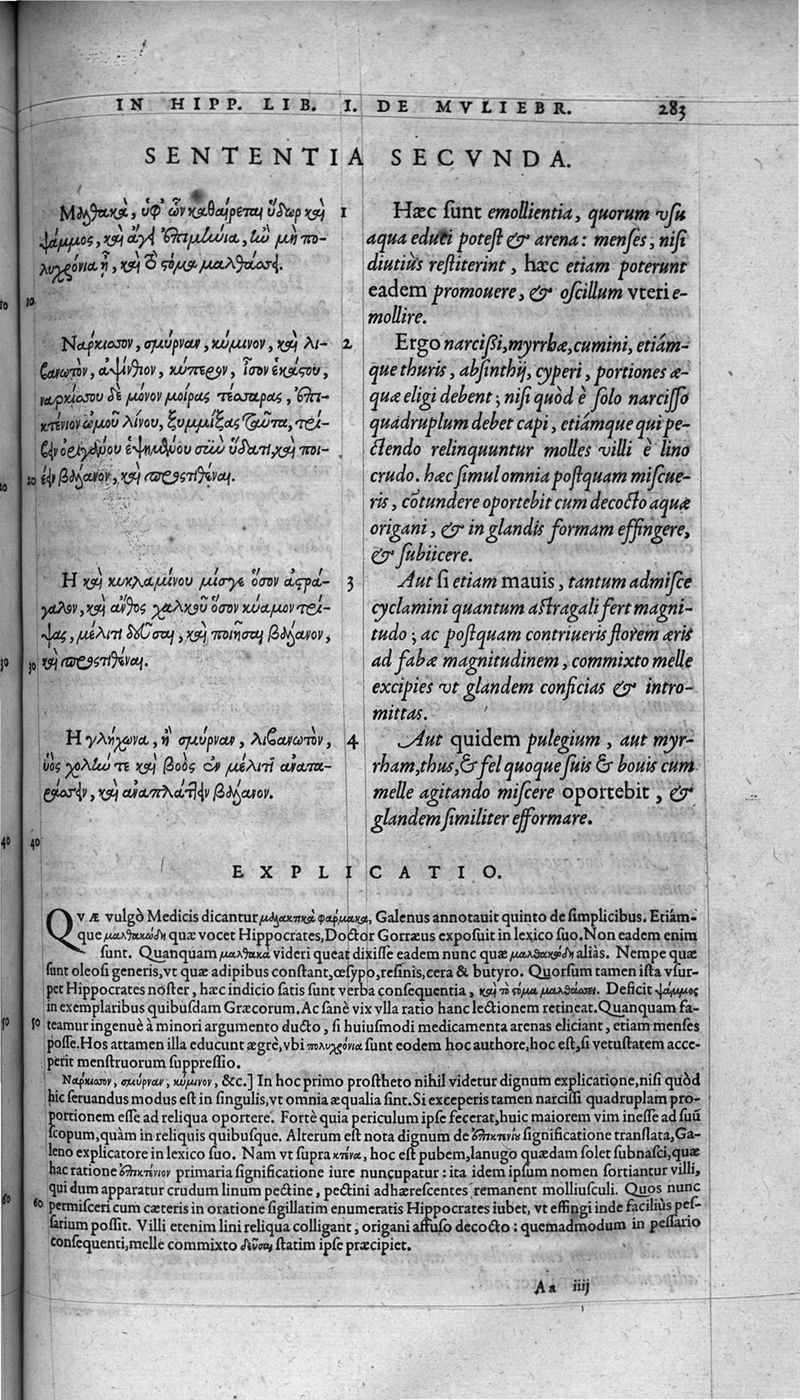 IN HIPP. LIB. I. DE MVLIEBR. 283
SENTENTIA SECVNDA.
Μαλθακὰ, ὑφ' ὧν καθαίρεται ὕδωρ καὶ
ψάμμος, καὶ ἄγει ἐπιμήνια, ἢν μὴ πο-
λυχρόνια ᾖ, καὶ τὸ στόμα μαλθάσσει.
10
Ναρκίσσου, σμύρναν, κύμινον, καὶ λι-
βανωτὸν, ἀψίνθιον, κύπερον, ἶσον ἑκάστου,
ναρκίσσου δὲ μόνον μοίρας τέσσαρας, ἐπι-
κτένιον ὠμοῦ λίνου, ξυμμίξας ταῦτα, τρί-
βειν ὀριγάνου ἑψημένου σὺν ὕδατι, καὶ ποι-
20 έειν βάλανον, καὶ προστιθέναι.
Η καὶ κυκλαμίνου μίσγε ὅσον ἀστρά-
γαλον, καὶ ἄνθος χαλκοῦ ὅσον κύαμον τρί-
ψας, μέλιτι δεῦσαι, καὶ ποιῆσαι βάλανον,
30 καὶ προστιθέναι.
Η γλήχωνα, ἢ σμύρναν, λιβανωτὸν,
ὑὸς χολήν τε καὶ βοὸς ἐν μέλιτι ἀναταρ-
ράσσειν, καὶ ἀναπλάττειν βάλανον.
40
1 Hæc sunt emollientia, quorum vsu
aqua educi potest & arena: menses, nisi
diutiùs restiterint, hæc etiam poterunt
eadem promouere, & oscillum vteri e-
mollire.
2 Ergo narcissi, myrrhæ, cumini, etiám-
que thuris, absinthij, cyperi, portiones æ-
quæ eligi debent; nisi quòd è solo narcisso
quadruplum debet capi, etiámque qui pe-
ctendo relinquuntur molles villi è lino
crudo. hæc simul omnia postquam miscue-
ris, cōtundere oportebit cum decocto aquæ
origani, & in glandis formam effingere,
& subiicere.
3 Aut si etiam mauis, tantum admisce
cyclamini quantum astragali fert magni-
tudo; ac postquam contriueris florem æris
ad fabæ magnitudinem, commixto melle
excipies vt glandem conficias & intro-
mittas.
4 Aut quidem pulegium, aut myr-
rham, thus, & fel quoque suis & bouis cum
melle agitando miscere oportebit, &
glandem similiter efformare.
EXPLICATIO.
QVÆ vulgò Medicis dicantur μαλακτικὰ φάρμακα, Galenus annotauit quinto de simplicibus. Etiám-
que μαλθακώδη quæ vocet Hippocrates, Doctor Gorræus exposuit in lexico suo. Non eadem enim
sunt. Quanquam μαλθακὰ videri queat dixisse eadem nunc quæ μαλθακώδη aliàs. Nempe quæ
sunt oleosi generis, vt quæ adipibus constant, œsypo, resinis, cera & butyro. Quorsum tamen ista vsur-
pet Hippocrates noster, hæc indicio satis sunt verba consequentia, καὶ τὸ στόμα μαλθάσσει. Deficit ψάμμος
in exemplaribus quibusdam Græcorum. Ac sanè vix vlla ratio hanc lectionem retineat. Quanquam fa-
50 teamur ingenuè à minori argumento ducto, si huiusmodi medicamenta arenas eliciant, etiam menses
posse. Hos attamen illa educunt ægrè, vbi πολυχρόνια sunt eodem hoc authore, hoc est, si vetustatem acce-
perit menstruorum suppressio.
Ναρκίσσου, σμύρναν, κύμινον, &c.] In hoc primo prostheto nihil videtur dignum explicatione, nisi quòd
hic seruandus modus est in singulis, vt omnia æqualia sint. Si exceperis tamen narcissi quadruplam pro-
portionem esse ad reliqua oportere. Fortè quia periculum ipse fecerat, huic maiorem vim inesse ad suū
scopum, quàm in reliquis quibusque. Alterum est nota dignum de ἐπικτενίν significatione translata, Ga-
leno explicatore in lexico suo. Nam vt supra κτένα, hoc est pubem, lanugo quædam solet subnasci, quæ
hac ratione ἐπικτένιον primaria significatione iure nuncupatur: ita idem ipsum nomen sortiantur villi,
qui dum apparatur crudum linum pectine, pectini adhærescentes remanent molliusculi. Quos nunc
60 permisceri cum cæteris in oratione sigillatim enumeratis Hippocrates iubet, vt effingi inde faciliùs pes-
sarium possit. Villi etenim lini reliqua colligant, origani affuso decocto: quemadmodum in pessario
consequenti, melle commixto δεῦσαι statim ipse præcipiet.
Aa iiij